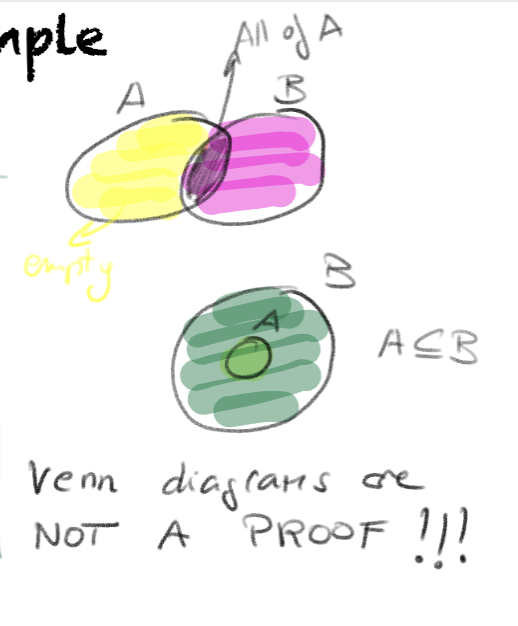 mple
All of A
A
B
empty
B
A
A ⊆ B
Venn diagrams are
NOT A PROOF !!!